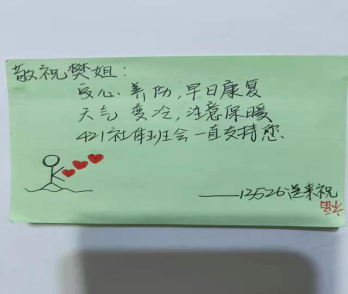 敬祝樊姐：
安心养伤，早日康复
天气变冷，注意保暖
421社团班会一直支持您
——13526送来祝
福